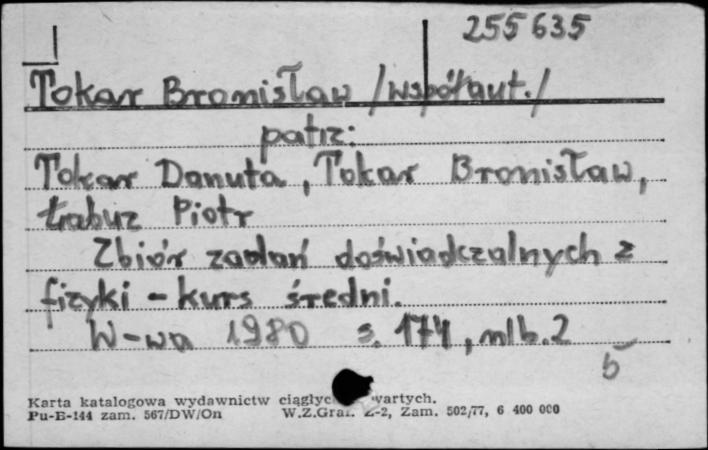 255635
Tokar Bronisław /współaut./
patrz:
Tokar Danuta, Tokar Bronisław,
Łabuz Piotr
Zbiór zadań doświadczalnych z
fizyki - kurs średni.
W-wa 1980 s. 174, nlb. 2
5
Karta katalogowa wydawnictw zwartych.
Pu-B-144 zam. 567/DW/On W.Z.Graf. Z-2, Zam. 502/77, 6 400 000